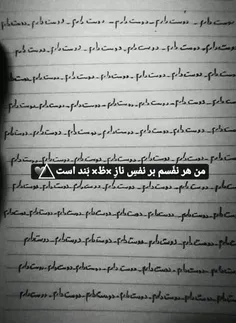 دوست دارم - دوست دارم - دوست دارم - دوست دارم - دوست دارم - دوست دارم
دوست دارم - دوست دارم - دوست دارم - دوست دارم - دوست دارم - دوست دارم
دوست دارم - دوست دارم - دوست دارم - دوست دارم - دوست دارم - دوست دارم
دوست دارم - دوست دارم - دوست دارم - دوست دارم - دوست دارم - دوست دارم
دوست دارم - دوست دارم - دوست دارم - دوست دارم - دوست دارم - دوست دارم
دوست دارم - دوست دارم - دوست دارم - دوست دارم - دوست دارم - دوست دارم
من هر نفسم بر نفسِ نازِ ×ظ× بَند است
دوست دارم - دوست دارم - دوست دارم - دوست دارم - دوست دارم - دوست دارم
دوست دارم - دوست دارم - دوست دارم - دوست دارم - دوست دارم - دوست دارم
دوست دارم - دوست دارم - دوست دارم - دوست دارم - دوست دارم - دوست دارم
دوست دارم - دوست دارم - دوست دارم - دوست دارم - دوست دارم - دوست دارم
دوست دارم - دوست دارم - دوست دارم - دوست دارم - دوست دارم - دوست دارم